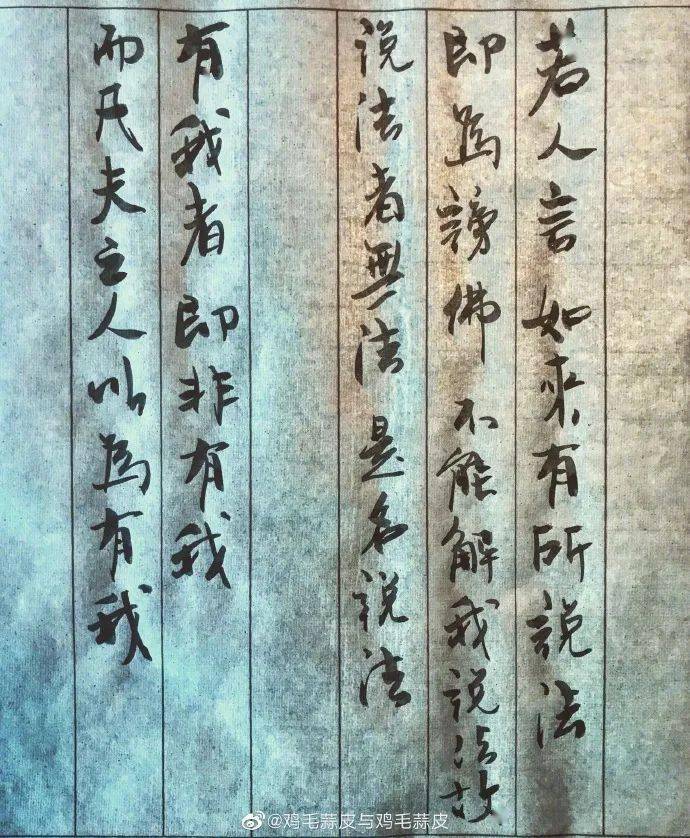 若人言如來有所説法
即爲謗佛不能解我説法故
説法者無法是名説法
有我者即非有我
而凡夫之人以爲有我
@鸡毛蒜皮与鸡毛蒜皮